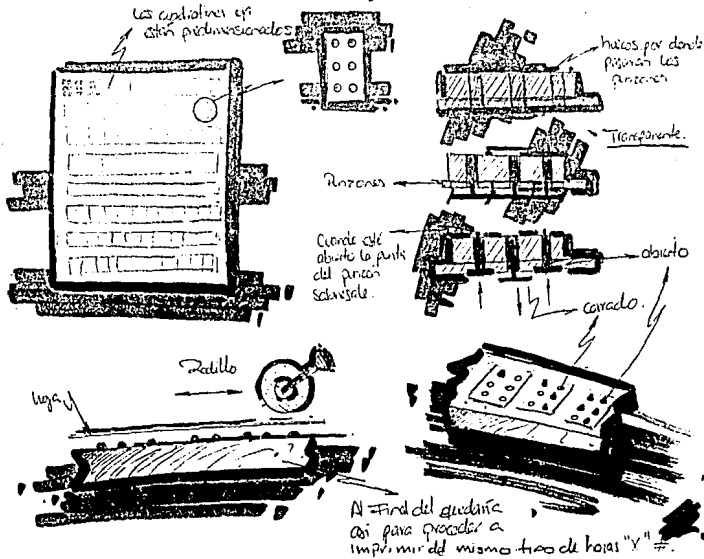 Los cuadratines ya
están predimensionados
huecos por donde
pasarán los
punzones
Transparente.
Punzones
Cuando esté
abierto la punta
del punzón
sobresale.
abierto
cerrado.
Rodillo
hoja
Al Final del quedaría
así para proceder a
imprimir del mismo tipo de hojas "X" #.